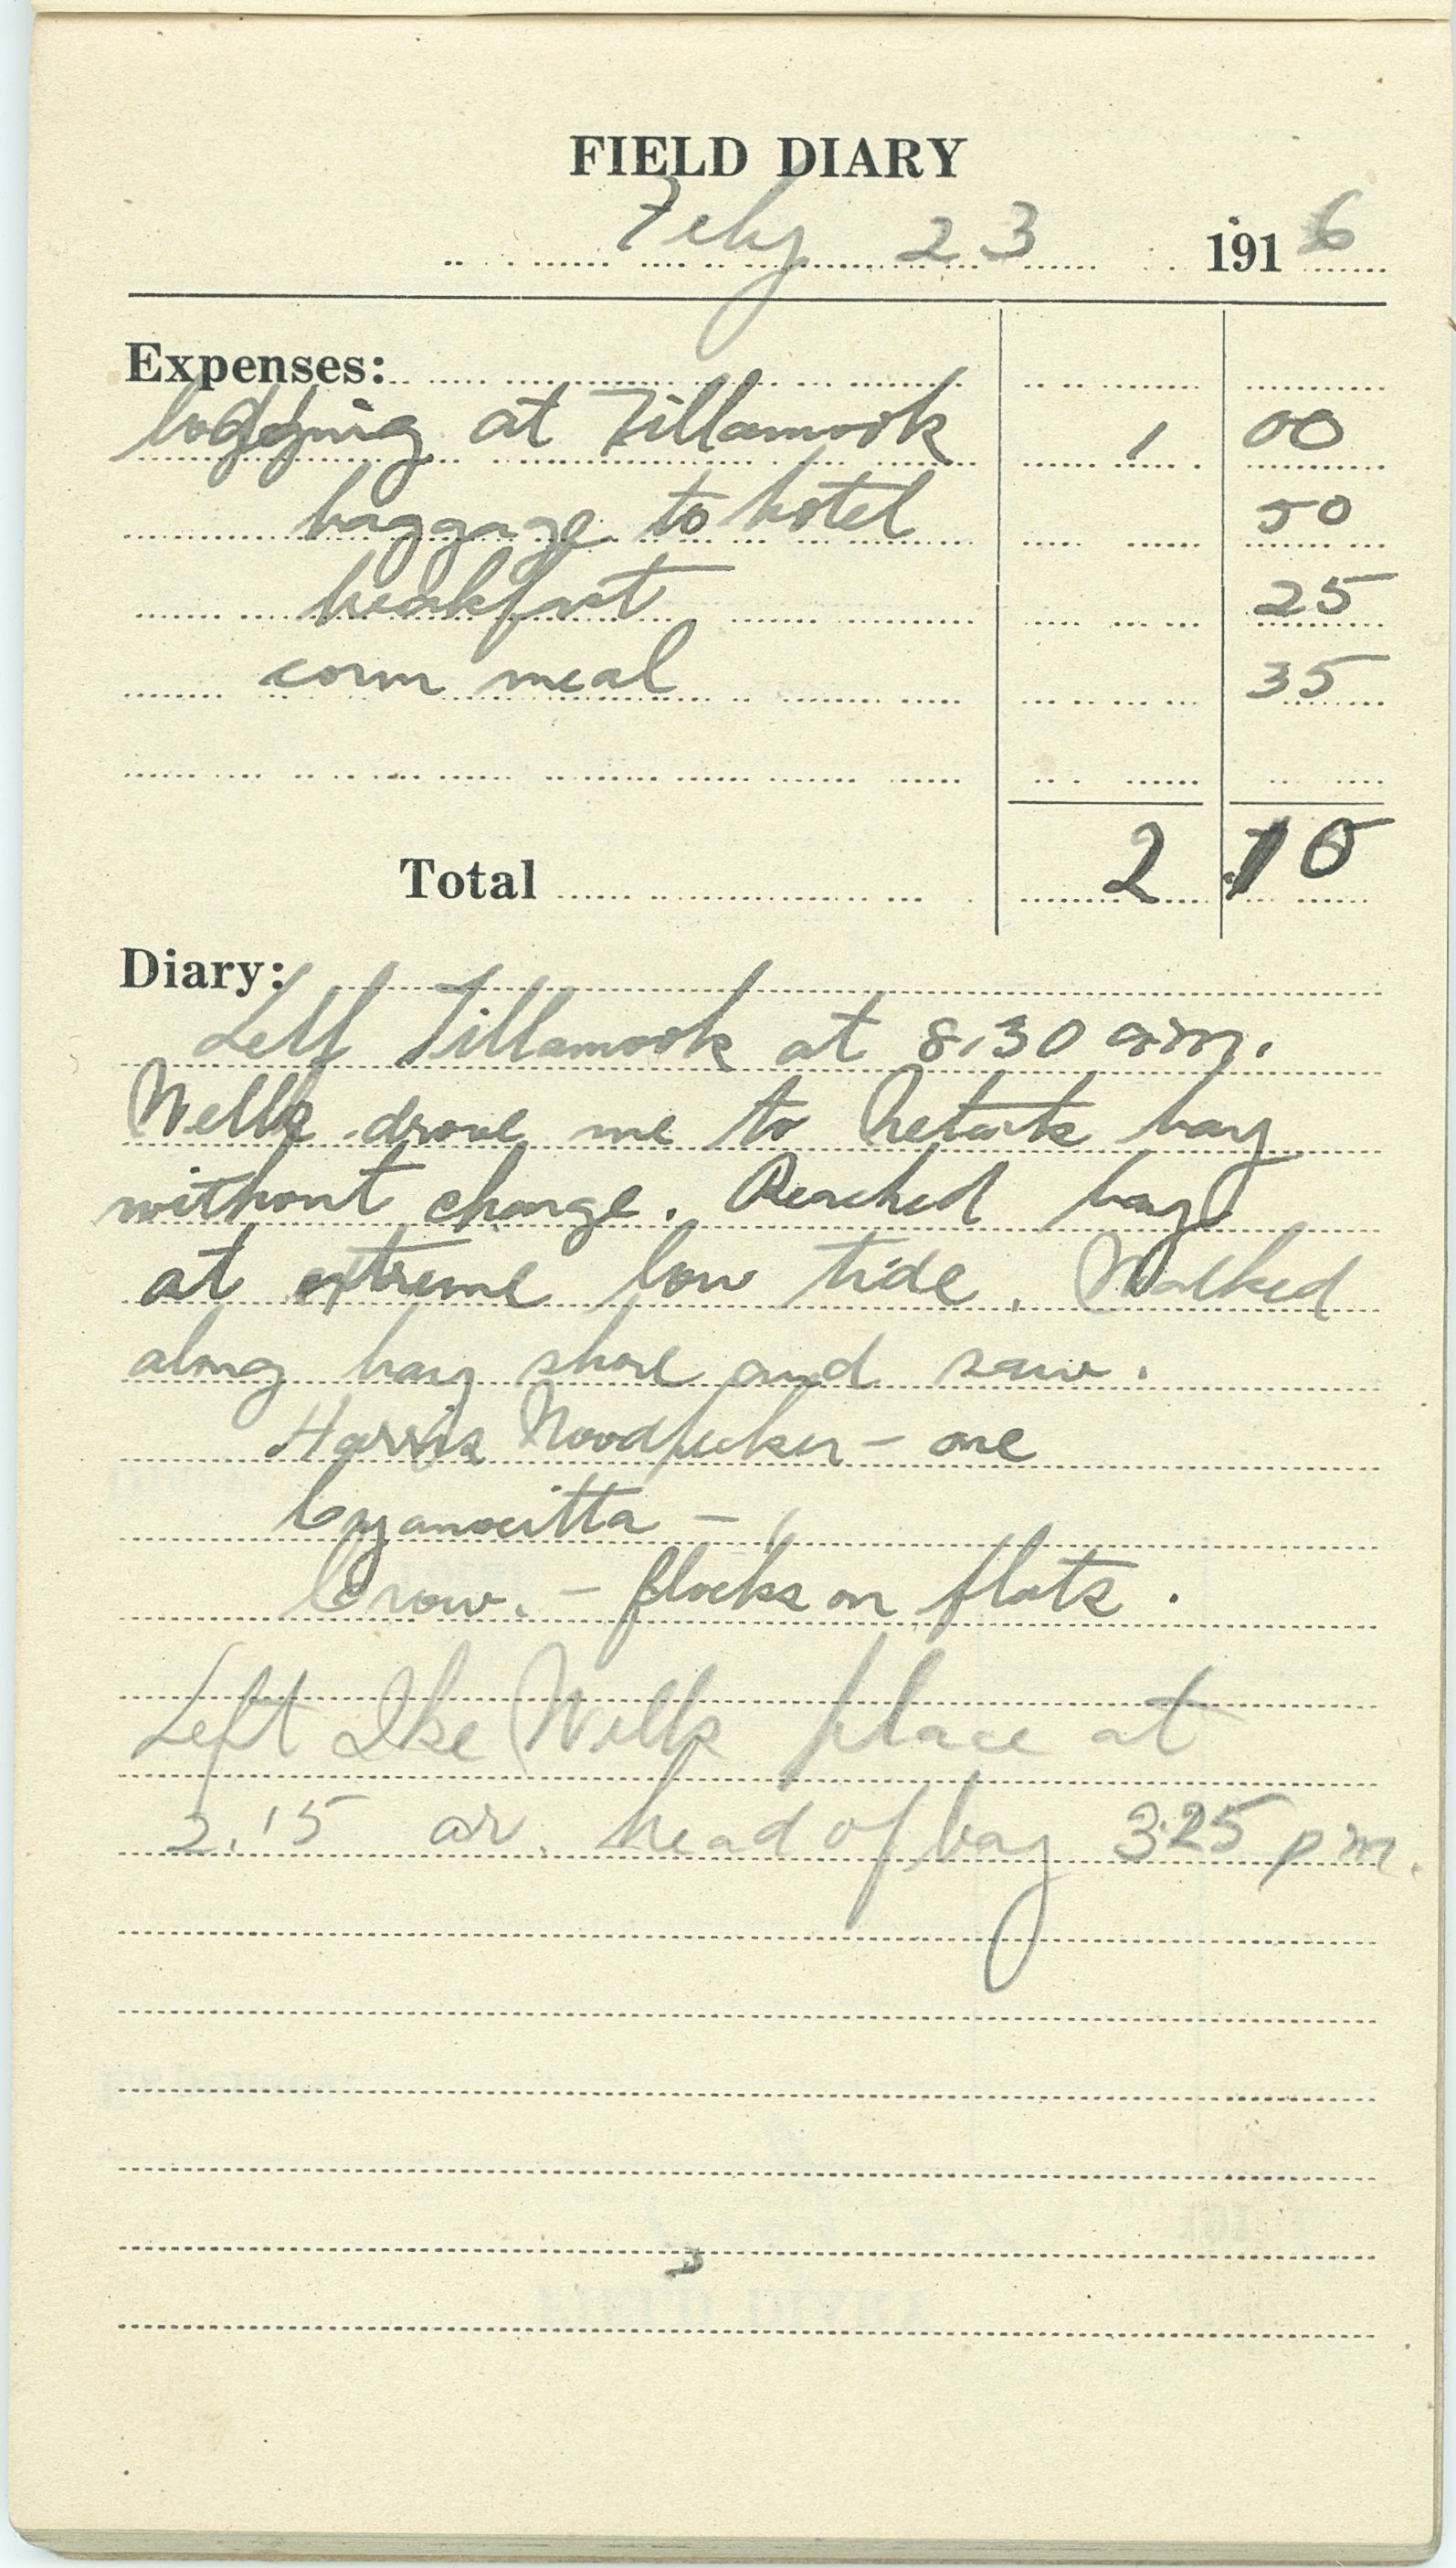 FIELD DIARY
Feby 23 1916
Expenses:
lodging at Tillamook 1 00
baggage to hotel 50
breakfast 25
corn meal 35
Total 2 10
Diary:
Left Tillamook at 8.30 a.m.
Wells drove me to Netarts bay
without charge. Reached bay
at extreme low tide. Walked
along bay shore and saw.
Harris Woodpecker - one
Cyanocitta - "
Crow. - flocks on flats.
Left Ike Wells place at
2.15 ar. head of bay 3.25 pm.